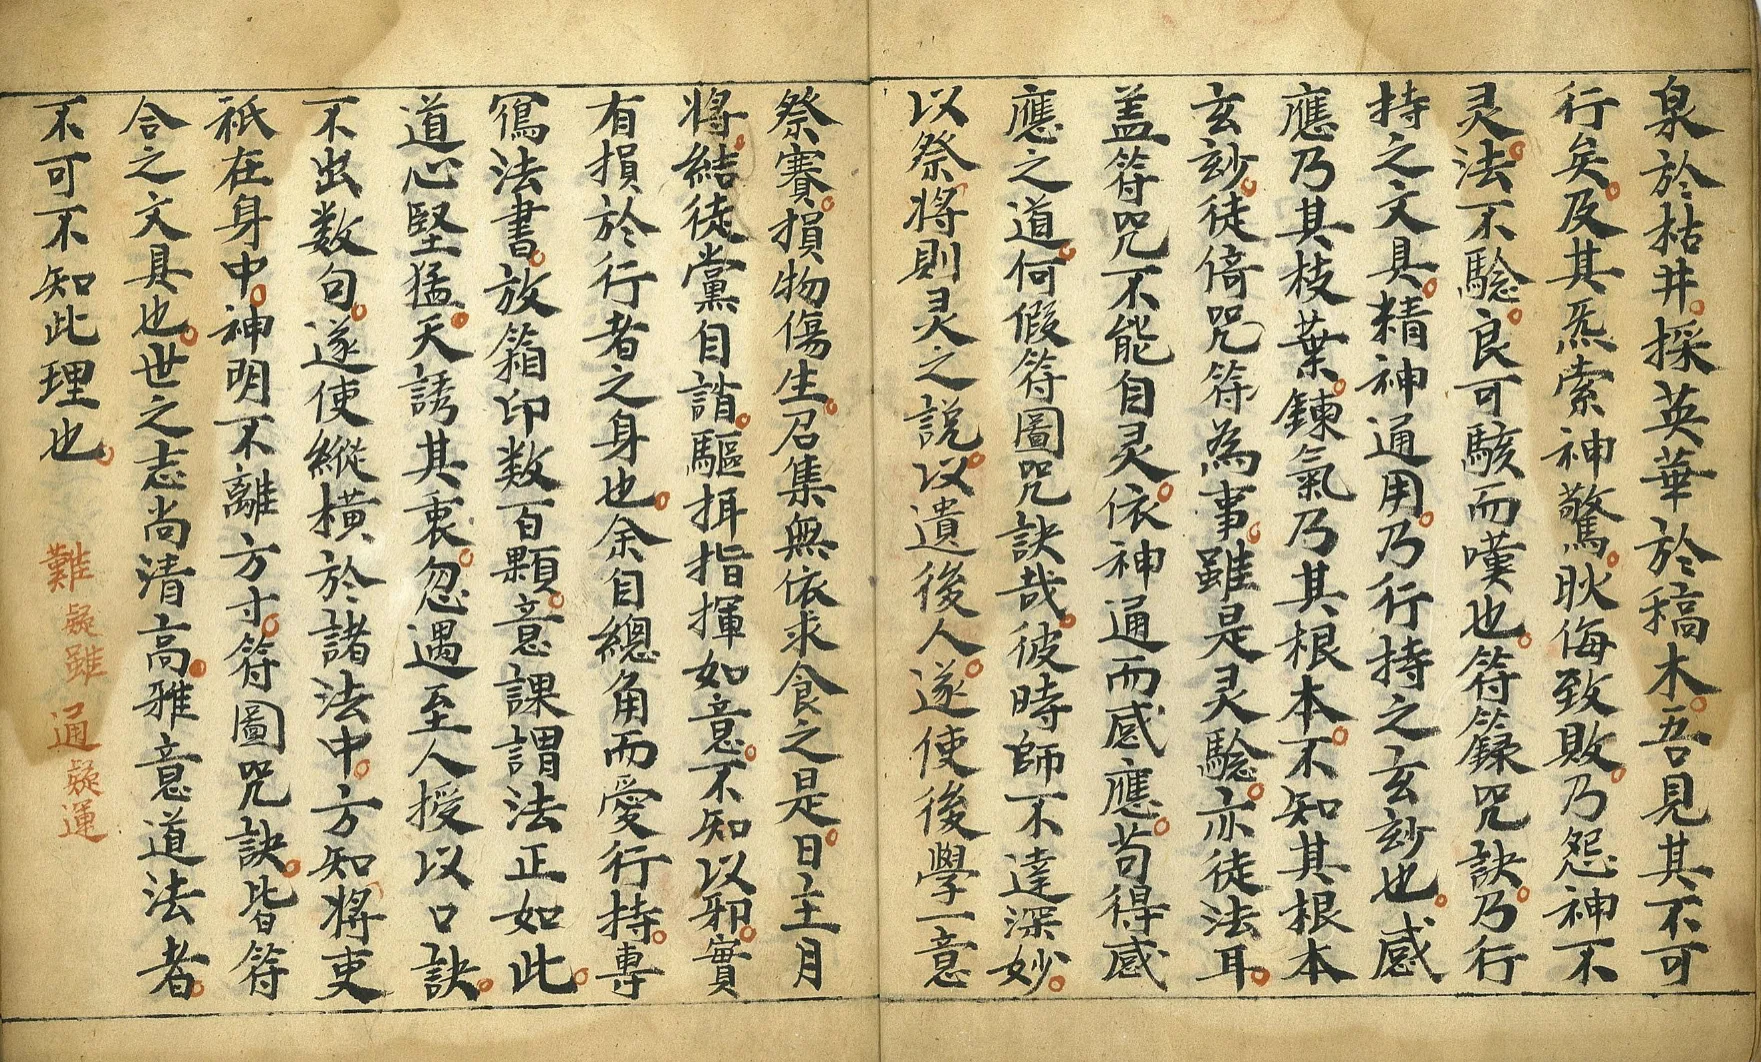 泉於枯井。採英華於稿木。吾見其不可
行矣。及其炁索神驚。耿侮致敗。乃怨神不
灵。法不驗。良可駭而嘆也。符籙咒訣。乃行
持之文具。精神通用。乃行持之玄玅也。感
應乃其枝葉。鍊氣乃其根本。不知其根本
玄玅。徒倚咒符為事。雖是灵驗。亦徒法耳。
盖符咒不能自灵。依神通而感應。苟得感
應之道。何假符圖咒訣哉。彼時師不達深妙。
以祭將則灵之說。以遺後人。遂使後學一意
祭賽。損物傷生。召集無依求食之是。日主月
將。結徒黨自諧。驅揖指揮如意。不知以邪。實
有損於行者之身也。余自總角而愛行持。專
寫法書。放籀印数百顆。意謂課法正如此。
道心堅猛。天誘其衷。忽遇至人授以口訣。
不出数句。遂使縱橫於諸法中。方知將吏
袛在身中。神明不離方寸。符圖咒訣。皆符
合之文具也。世之志尚清高。雅意道法者。
不可不知此理也。
難疑雖 通疑運